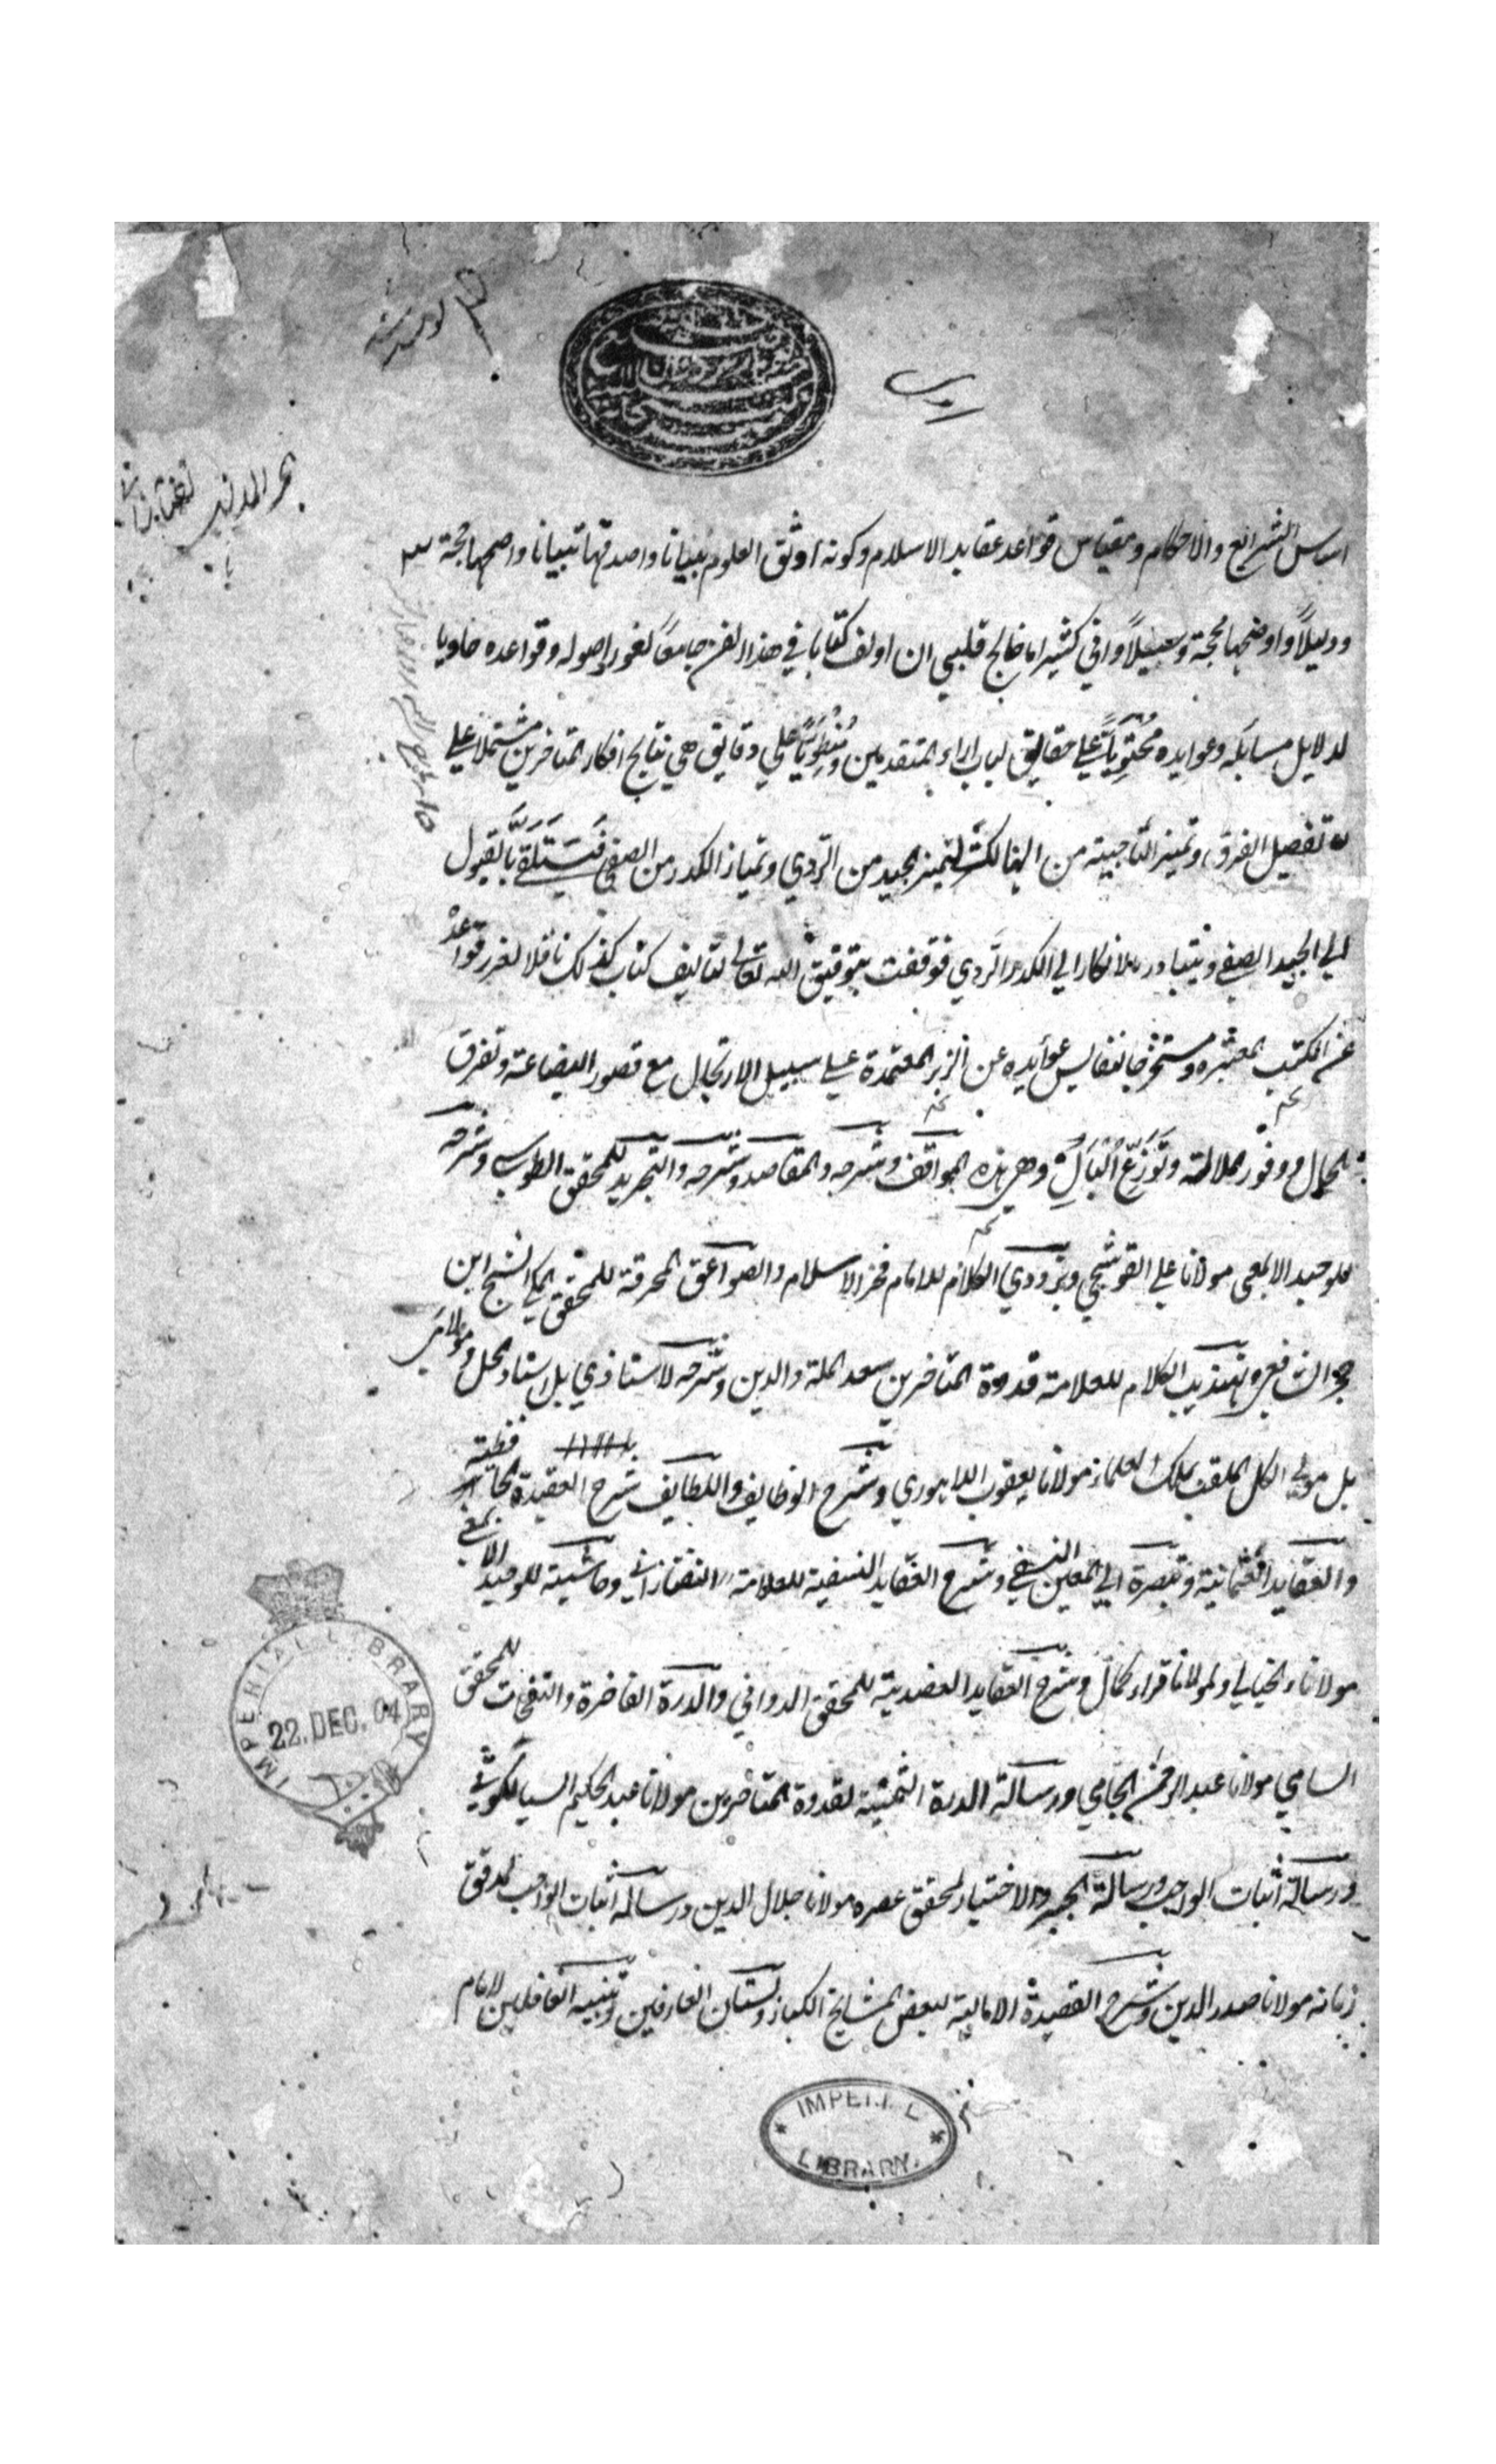 بحر المذاهب تفتازاني
اساس الشرائع والاحكام ومقياس قواعد عقايد الاسلام وكونه اوثق العلوم بنيانا واصدقها تبيانا واصحها حجة
ودليلاً واوضحها محجة وسبيلاً واني كثيراما خالج قلبي ان اولف كتابا في هذا الفن جامعاً لغرر اصوله وقواعده حاويا
لدلايل مسايله وعوايده محتوياً على حقايق لباب اراء المتقدمين ومنطوياً علي دقايق هي نتايج افكار المتاخرين مشتملا علي
تفصيل الفرق وتميز الناجية من الهالكة ليتميز الجيد من الردي وتمياز الكدر من الصفي فيستلقي بالقبول
الي الجيد الصفي ويتبادر بالانكار الي الكدر الردي فوقفت بتوفيق الله تعالى لتاليف كتاب كذلك ناقلا لغرر قواعد
عن الكتب المعتبره ومستخرجا نفايس عوايده عن الزبر المعتمدة علي سبيل الارتجال مع قصور البضاعة وتفرق
الحال ووفور الملالة وتوزّع البال وهي هذه المواقف وشرحه والمقاصد وشرحه والتجريد للمحقق الطوسي وشرحه
للوحيد الالمعي مولانا علي القوشجي وبزدوي الكلام للامام فخر الاسلام والصواعق المحرقة للمحقق المكي الشيخ ابن
حجر الشافعي وتهذيب الكلام للعلامة قدوة المتاخرين سعد الملة والدين وشرحه لاستاذي بل استاد الكل ومولائي
بل مولى الكل الملقب بملك العلماء مولانا يعقوب اللاهوري وشرح الوظايف واللطايف شرح العقيدة الحافظية
والعقايد العثمانية وتبصرة ابي المعين النسفي وشرح العقايد النسفية للعلامة التفتازاني وحاشيته للوحيد الالمعي
مولاناء الخيالي ولمولانا قراء كمال وشرح العقايد العضدية للمحقق الدواني والدرة الفاخرة والنفحات للمحقق
السامي مولانا عبد الرحمن الجامي ورسالة الدرة الثمينة لقدوة المتاخرين مولانا عبد الحكيم السيالكوتي
ورسالة اثبات الواجب ورسالة الجبر والاختيار لمحقق عصره مولانا جلال الدين ورسالة اثبات الواجب لمدقق
زمانه مولانا صدر الدين وشرح القصيدة الامالية لبعض المشايخ الكبار وبستان العارفين وتنبيه الغافلين للامام
IMPERIAL LIBRARY
22. DEC. 04
IMPERIAL
LIBRARY.